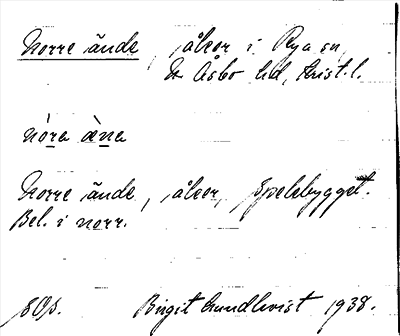 Norre ände, åkor i Rya sn,
N Åsbo hd, Krist. l.
nó̱ra æ̀na
Norre ände, åker, Spelebygget.
Bel. i norr.
Birgit Lundkvist 1938.